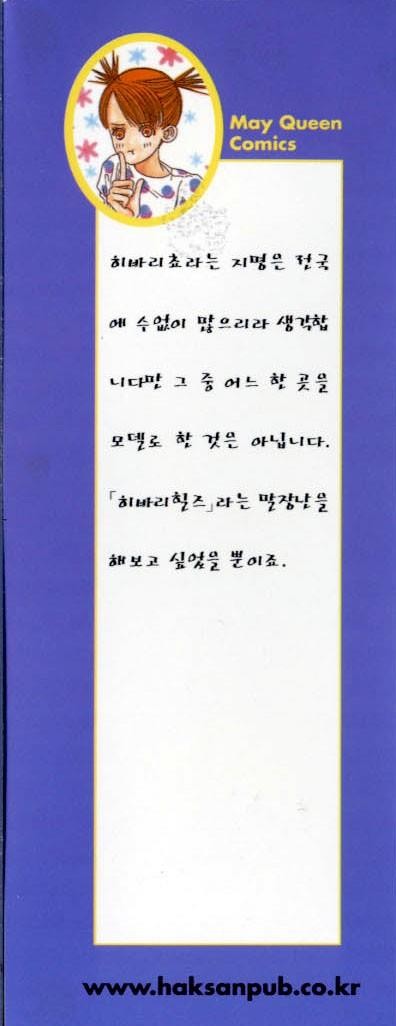 May Queen
Comics
히바리쵸라는 지명은 전국
에 수없이 많으리라 생각합
니다만 그 중 어느 한 곳을
모델로 한 것은 아닙니다.
「히바리힐즈」라는 말장난을
해보고 싶었을 뿐이죠.
www.haksanpub.co.kr